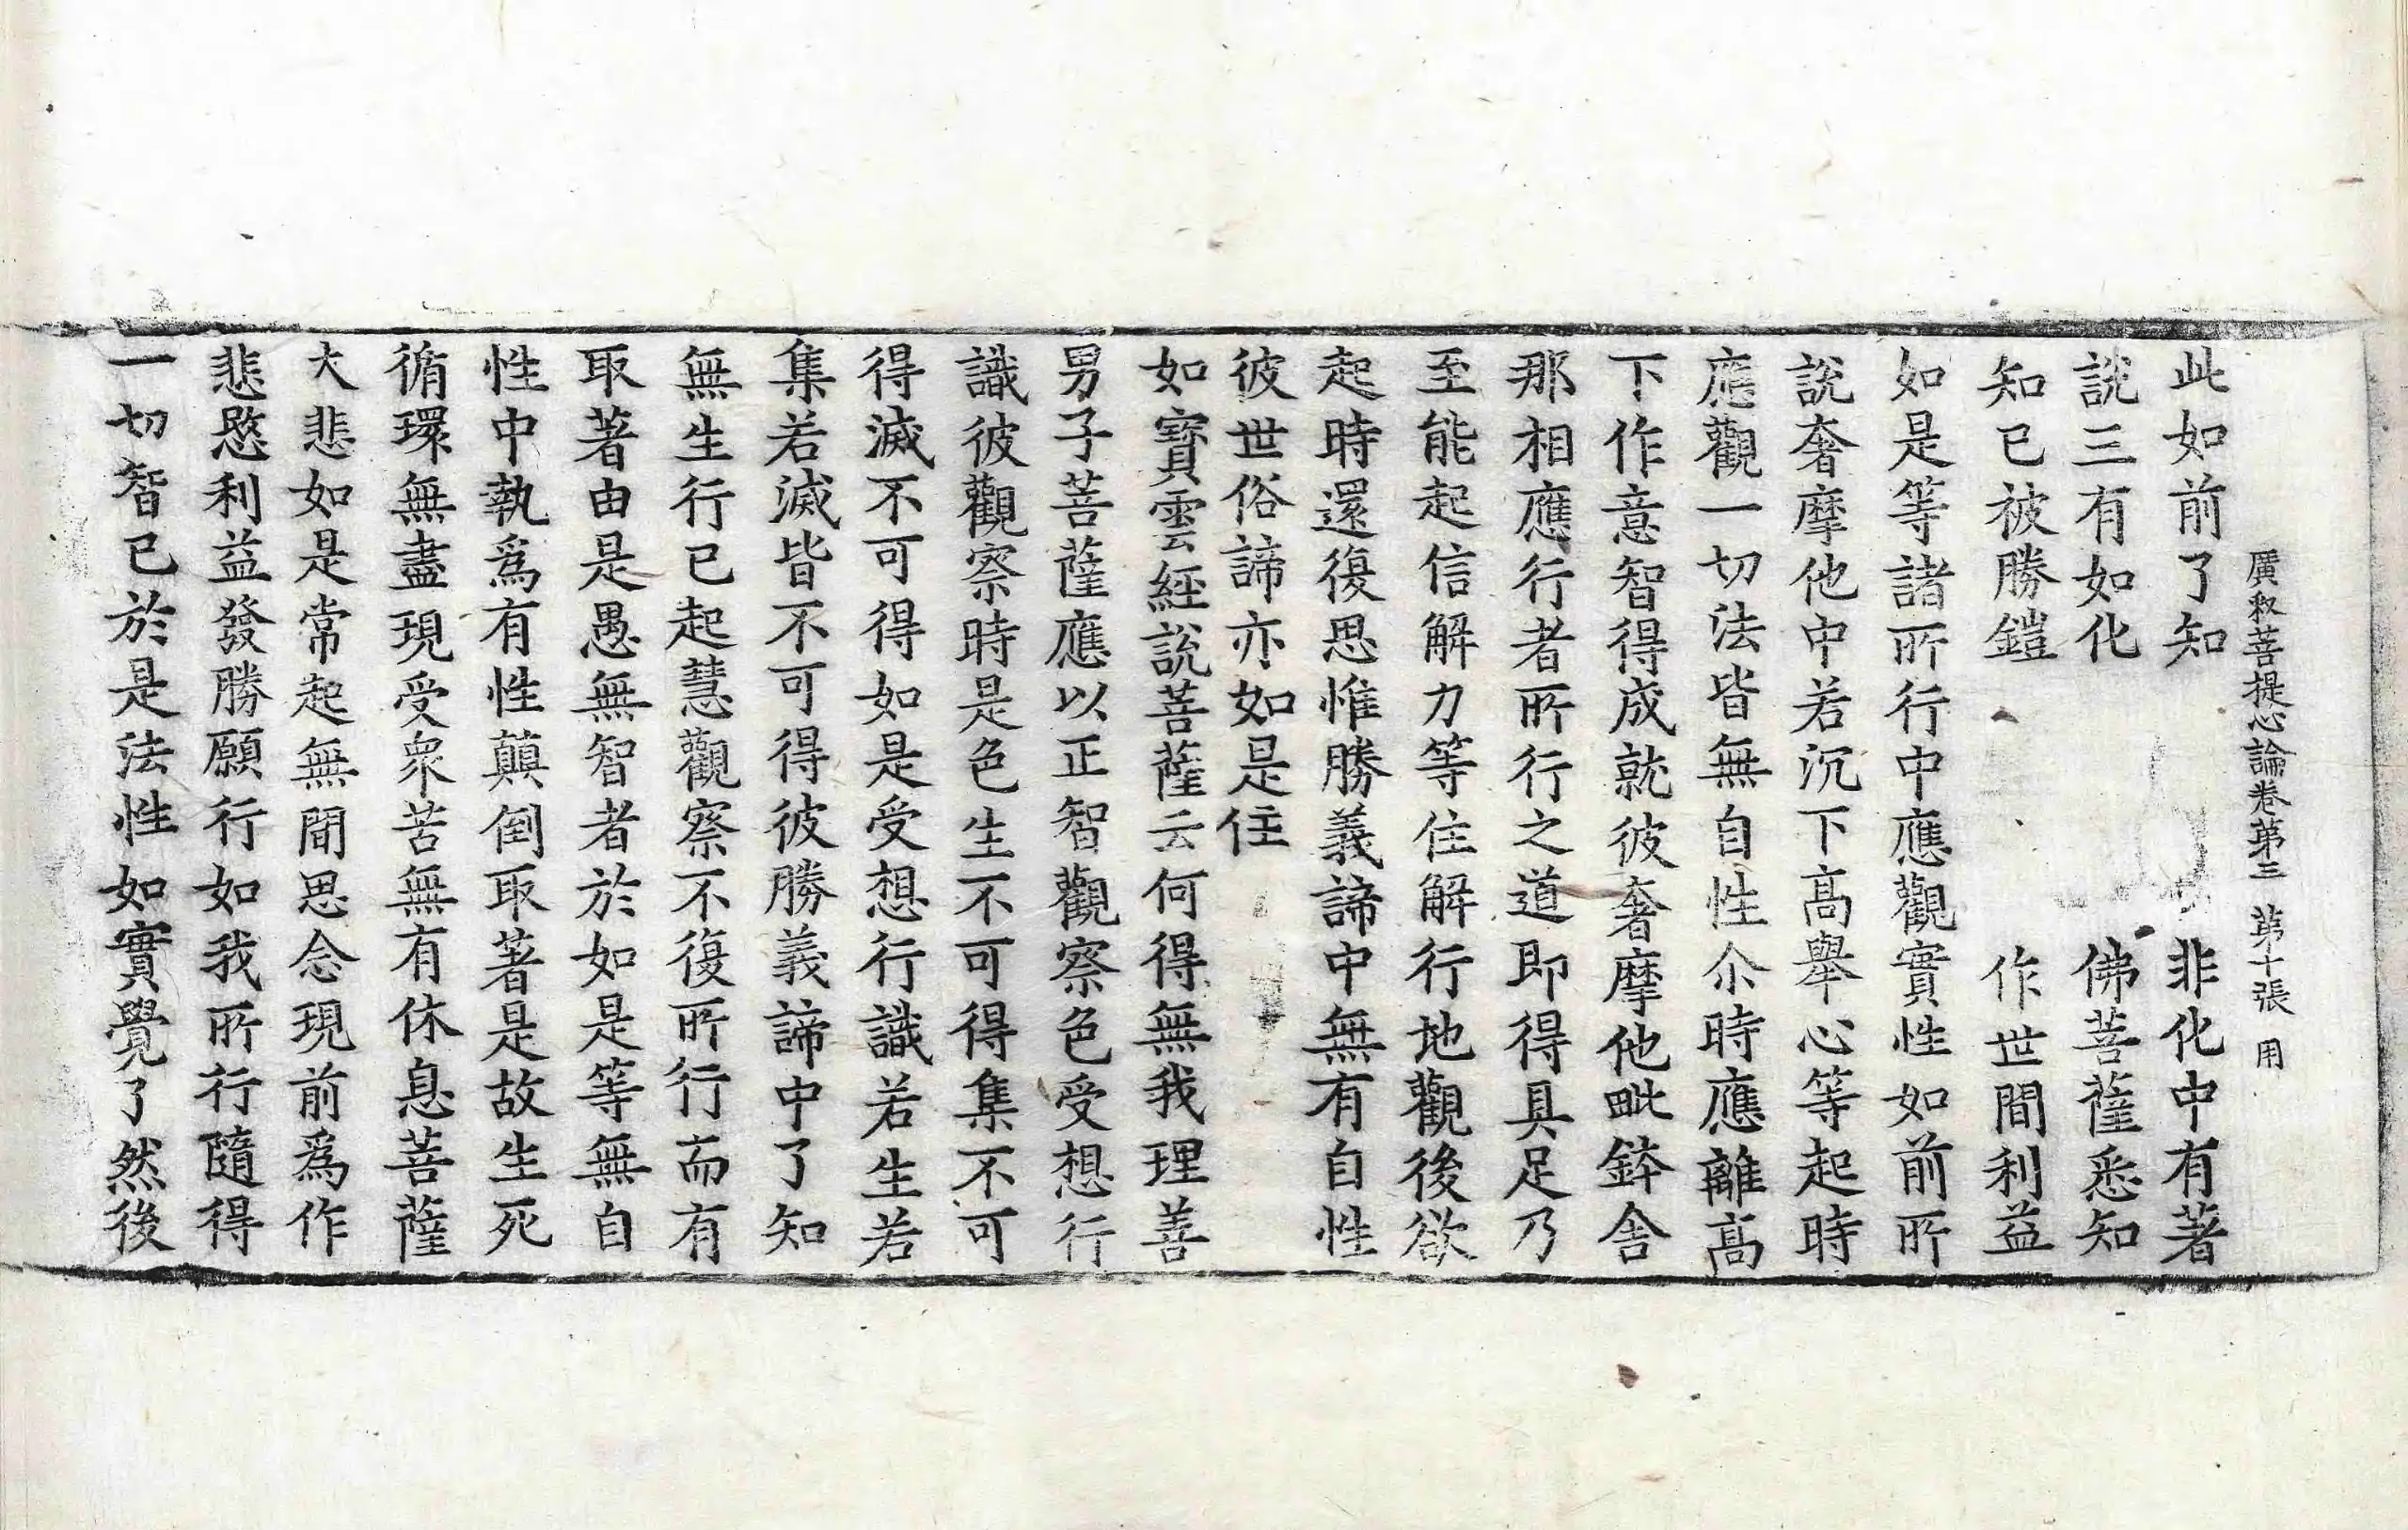 廣釋菩提心論卷第三 第十張 用
此如前了知 非化中有著
說三有如化 佛菩薩悉知
知已被勝鎧 作世間利益
如是等諸所行中應觀實性如前所
說奢摩他中若沉下高舉心等起時
應觀一切法皆無自性尒時應離高
下作意智得成就彼奢摩他毗鉢舍
那相應行者所行之道即得具足乃
至能起信解力等住解行地觀後欲
起時還復思惟勝義諦中無有自性
彼世俗諦亦如是住
如寶雲經說菩薩云何得無我理善
男子菩薩應以正智觀察色受想行
識彼觀察時是色生不可得集不可
得滅不可得如是受想行識若生若
集若滅皆不可得彼勝義諦中了知
無生行已起慧觀察不復所行而有
取著由是愚無智者於如是等無自
性中執爲有性顛倒取著是故生死
循環無盡現受衆苦無有休息菩薩
大悲如是常起無間思念現前爲作
悲愍利益發勝願行如我所行隨得
一切智已於是法性如實覺了然後